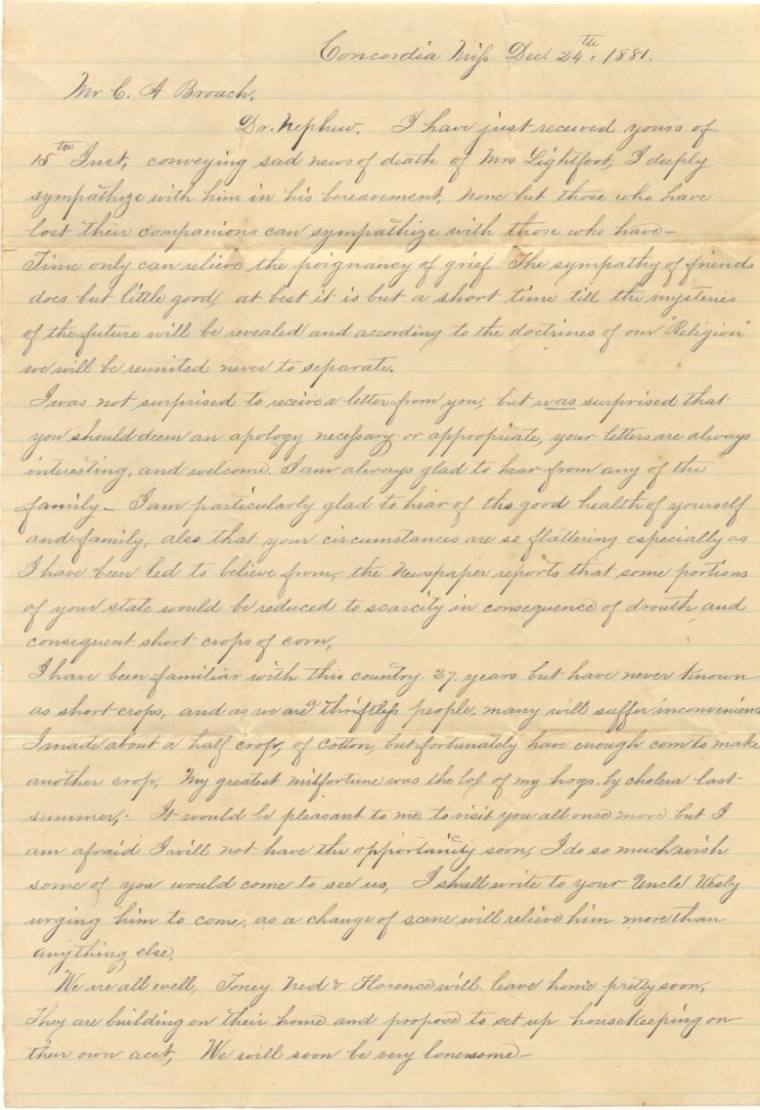 Concordia Miss Dec. 24th, 1881.
Mr C. A Broach.
Dr. Nephew. I have just received yours of
15th Inst, conveying sad news of death of Mrs Lightfoot, I deeply
sympathize with him in his bereavement, none but those who have
lost their companions can sympathize with those who have –
Time only can relieve the poignancy of grief The sympathy of friends
does but little good, at best it is but a short time till the mysteries
of the future will be revealed and according to the doctrines of our "Religion"
we will be reunited never to separate.
I was not surprised to receive a letter from you, but was surprised that
you should deem an apology necessary or appropriate, your letters are always
interesting, and welcome. I am always glad to hear from any of the
family – I am particularly glad to hear of the good health of yourself
and family, also that your circumstances are so flattering especially as
I have been led to believe from, the Newspaper reports that some portions
of your state would be reduced to scarcity in consequence of drouth and
consequent short crops of corn,
I have been familiar with this country 27 years but have never known
as short crops, and as we are a thriftless people, many will suffer inconvenience
I made about a half crop, of cotton, but fortunately have enough corn to make
another crop, My greatest misfortune was the loss of my hogs by cholera last
summer, It would be pleasant to me to visit you all once more but I
am afraid I will not have the opportunity soon, I do so much wish
some of you would come to see us, I shall write to your Uncle Wesly
urging him to come, as a change of scene will relieve him more than
anything else,
We are all well, Toney Ned & Florence will leave home pretty soon,
They are building on their home and propose to set up housekeeping on
their own acct, We will soon be very lonesome –